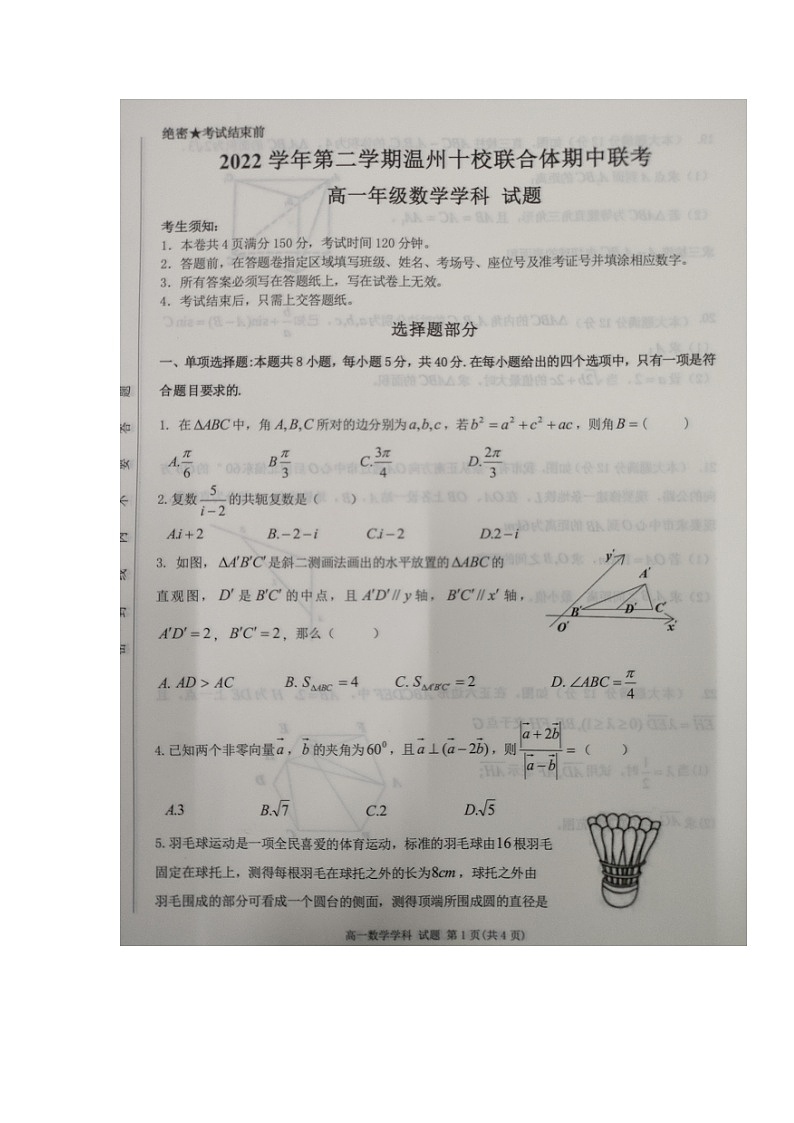 绝密★考试结束前
2022 学年第二学期温州十校联合体期中联考
高一年级数学学科 试题
考生须知:
1. 本卷共 4 页满分 150 分,考试时间 120 分钟。
2. 答题前,在答题卷指定区域填写班级、姓名、考场号、座位号及准考证号并填涂相应数字。
3. 所有答案必须写在答题纸上,写在试卷上无效。
4. 考试结束后,只需上交答题纸。
选择题部分
一、单项选择题:本题共 8 小题,每小题 5 分,共 40 分.在每小题给出的四个选项中,只有一项是符
合题目要求的.
1. 在 ΔABC 中,角 A,B,C 所对的边分别为 a,b,c,若 b² = a² + c² + ac,则角 B = ( )
A. π/6 B. π/3 C. 3π/4 D. 2π/3
2. 复数 5/(i−2) 的共轭复数是( )
A.i + 2 B.−2 − i C.i − 2 D.2 − i
3. 如图,ΔA′B′C′ 是斜二测画法画出的水平放置的 ΔABC 的
直观图,D′ 是 B′C′ 的中点,且 A′D′ // y 轴,B′C′ // x′ 轴,
A′D′ = 2,B′C′ = 2,那么( )
y′
A′
B′
D′
C′
O′
x′
A. AD > AC B. S_{ΔABC} = 4 C. S_{ΔA′B′C′} = 2 D. ∠ABC = π/4
4.已知两个非零向量 a⃗,b⃗ 的夹角为 60⁰,且 a⃗ ⊥ (a⃗ − 2b⃗),则 |a⃗ + 2b⃗|/|a⃗ − b⃗| = ( )
A.3 B.√7 C.2 D.√5
5.羽毛球运动是一项全民喜爱的体育运动,标准的羽毛球由 16 根羽毛
固定在球托上,测得每根羽毛在球托之外的长为 8cm,球托之外由
羽毛围成的部分可看成一个圆台的侧面,测得顶端所围成圆的直径是
高一数学学科 试题 第 1 页(共 4 页)